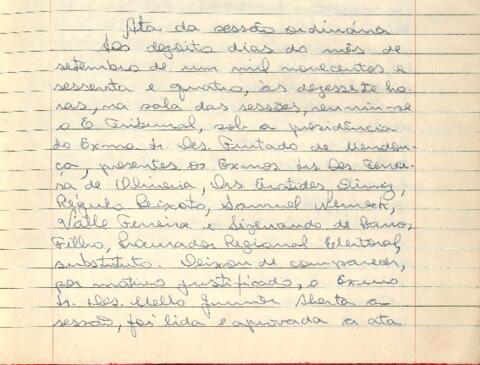 Ata da sessão ordinária
Aos dezoito dias do mês de
setembro de um mil novecentos e
sessenta e quatro, às dezessete ho-
ras, na sala das sessões, reuniu-se
o E. Tribunal, sob a presidência
do Exmo. Sr. Des. Furtado de Mendon-
ça, presentes os Exmos. Srs. Des. Ferrei-
ra de Oliveira, Drs. Eratides, Diniz,
Régulo Peixoto, Samuel Werneck,
Valle Ferreira e Sizenando de Barros
Filho, Procurador Regional Eleitoral,
substituto. Deixou de comparecer,
por motivo justificado, o Exmo.
Sr. Des. Mello Junior. Aberta a
sessão, foi lida e aprovada a ata